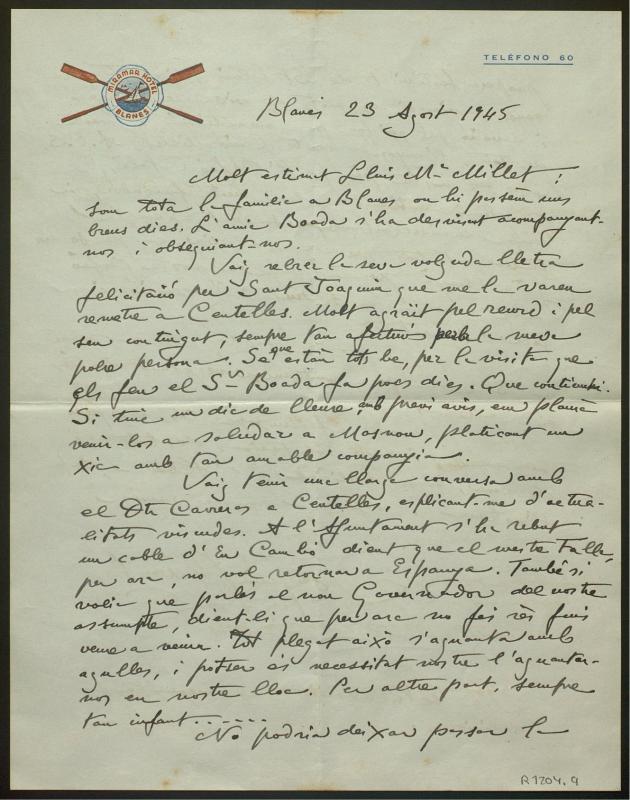 TELÉFONO 60
MIRAMAR HOTEL
BLANES
Blanes 23 Agost 1945
Molt estimat Lluís Mª Millet:
Som tota la familia a Blanes on hi passem uns
breus dies. L'amic Boada s'ha desviscut acompanyant-
nos i obsequiant-nos.
Vaig rebrer la seva volguda lletra
felicitació per Sant Joaquim que me la varen
remetre a Centelles. Molt agraït pel record i pel
seu contingut, sempre tan afectuós per la meva
pobre persona. Sé que están tots be, per la visita que
els feu el Sr. Boada fa pocs dies. Que continuhi.
Si tinc un dia de lleure, amb previ avis, em plauria
venir-los a saludar a Masnou, platicant un
xic amb tan amable companyia.
Vaig tenir una llarga conversa amb
el Dr. Carreras a Centelles, esplicant-me d'actua-
litats viscudes. A l'Ajuntament s'ha rebut
un cable d'En Cambó dient que el mestre
per ara, no vol retornar a Espanya. També si
volia que parlés al nou Governador del nostre
assumpte, dient-li que per ara no fés rès fins
veure a venir. Tot plegat això s'aguanta amb
agulles, i potser és necessitat nostre l'aguantar-
nos en nostre lloc. Per altre part, sempre
tan infant......
No podria deixar passar la
R 1204.9